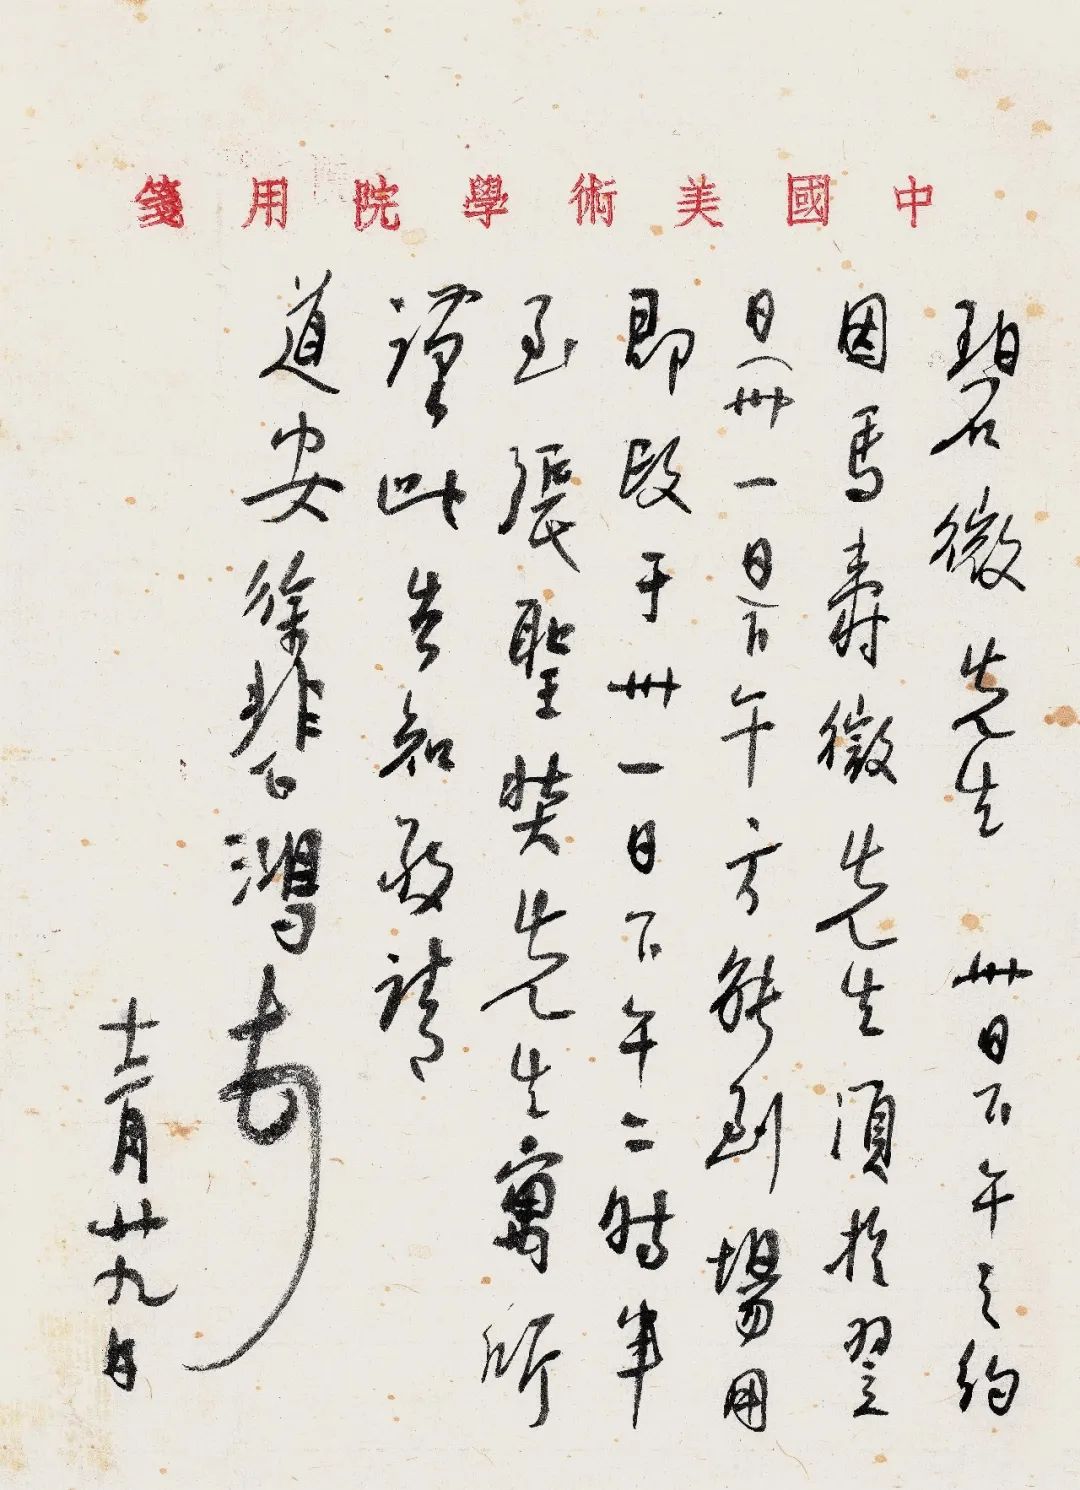 中國美術學院用箋
碧微先生 卅日下午之約
因馬壽徵先生須於翌
日(卅一日)下午方能到場用
即改于卅一日下午二時半
至張聖奘先生寓所
謹此告知敬請
道安徐悲鴻
十二月廿九日